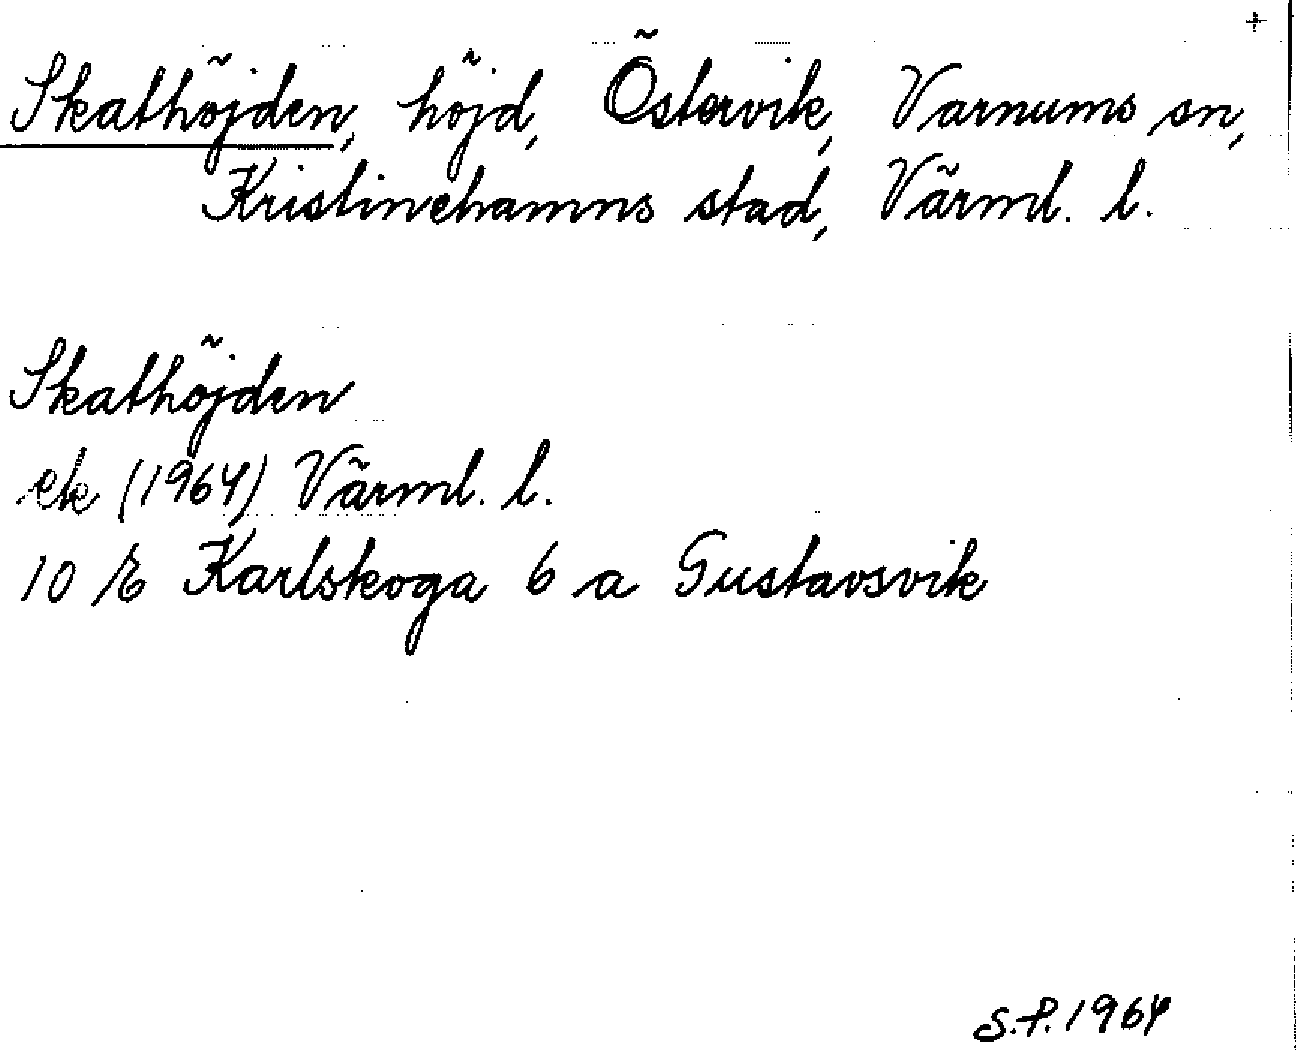 +
Skathöjden, höjd, Östervik, Varnums sn,
Kristinehamns stad, Värml. l.
Skathöjden
ek (1964) Värml. l.
10 E Karlskoga 6 a Gustavsvik
S.P. 1964